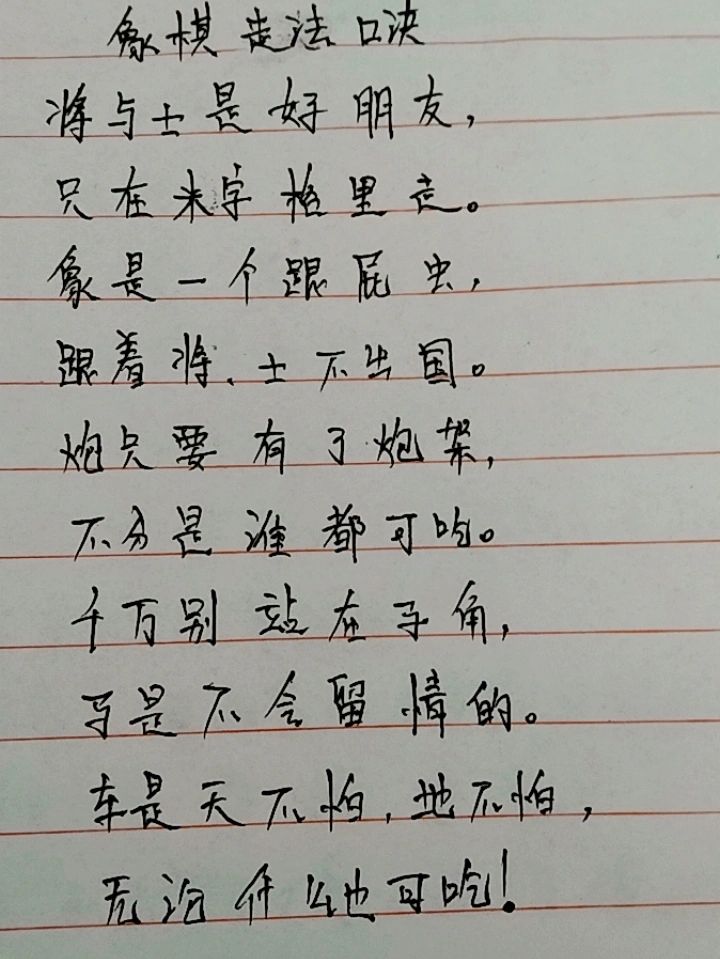 象棋走法口决
将与士是好朋友，
只在米字格里走。
象是一个跟屁虫，
跟着将、士不出国。
炮只要有了炮架，
不分是谁都可吃。
千万别站在马角，
马是不会留情的。
车是天不怕，地不怕，
无论什么他可吃！